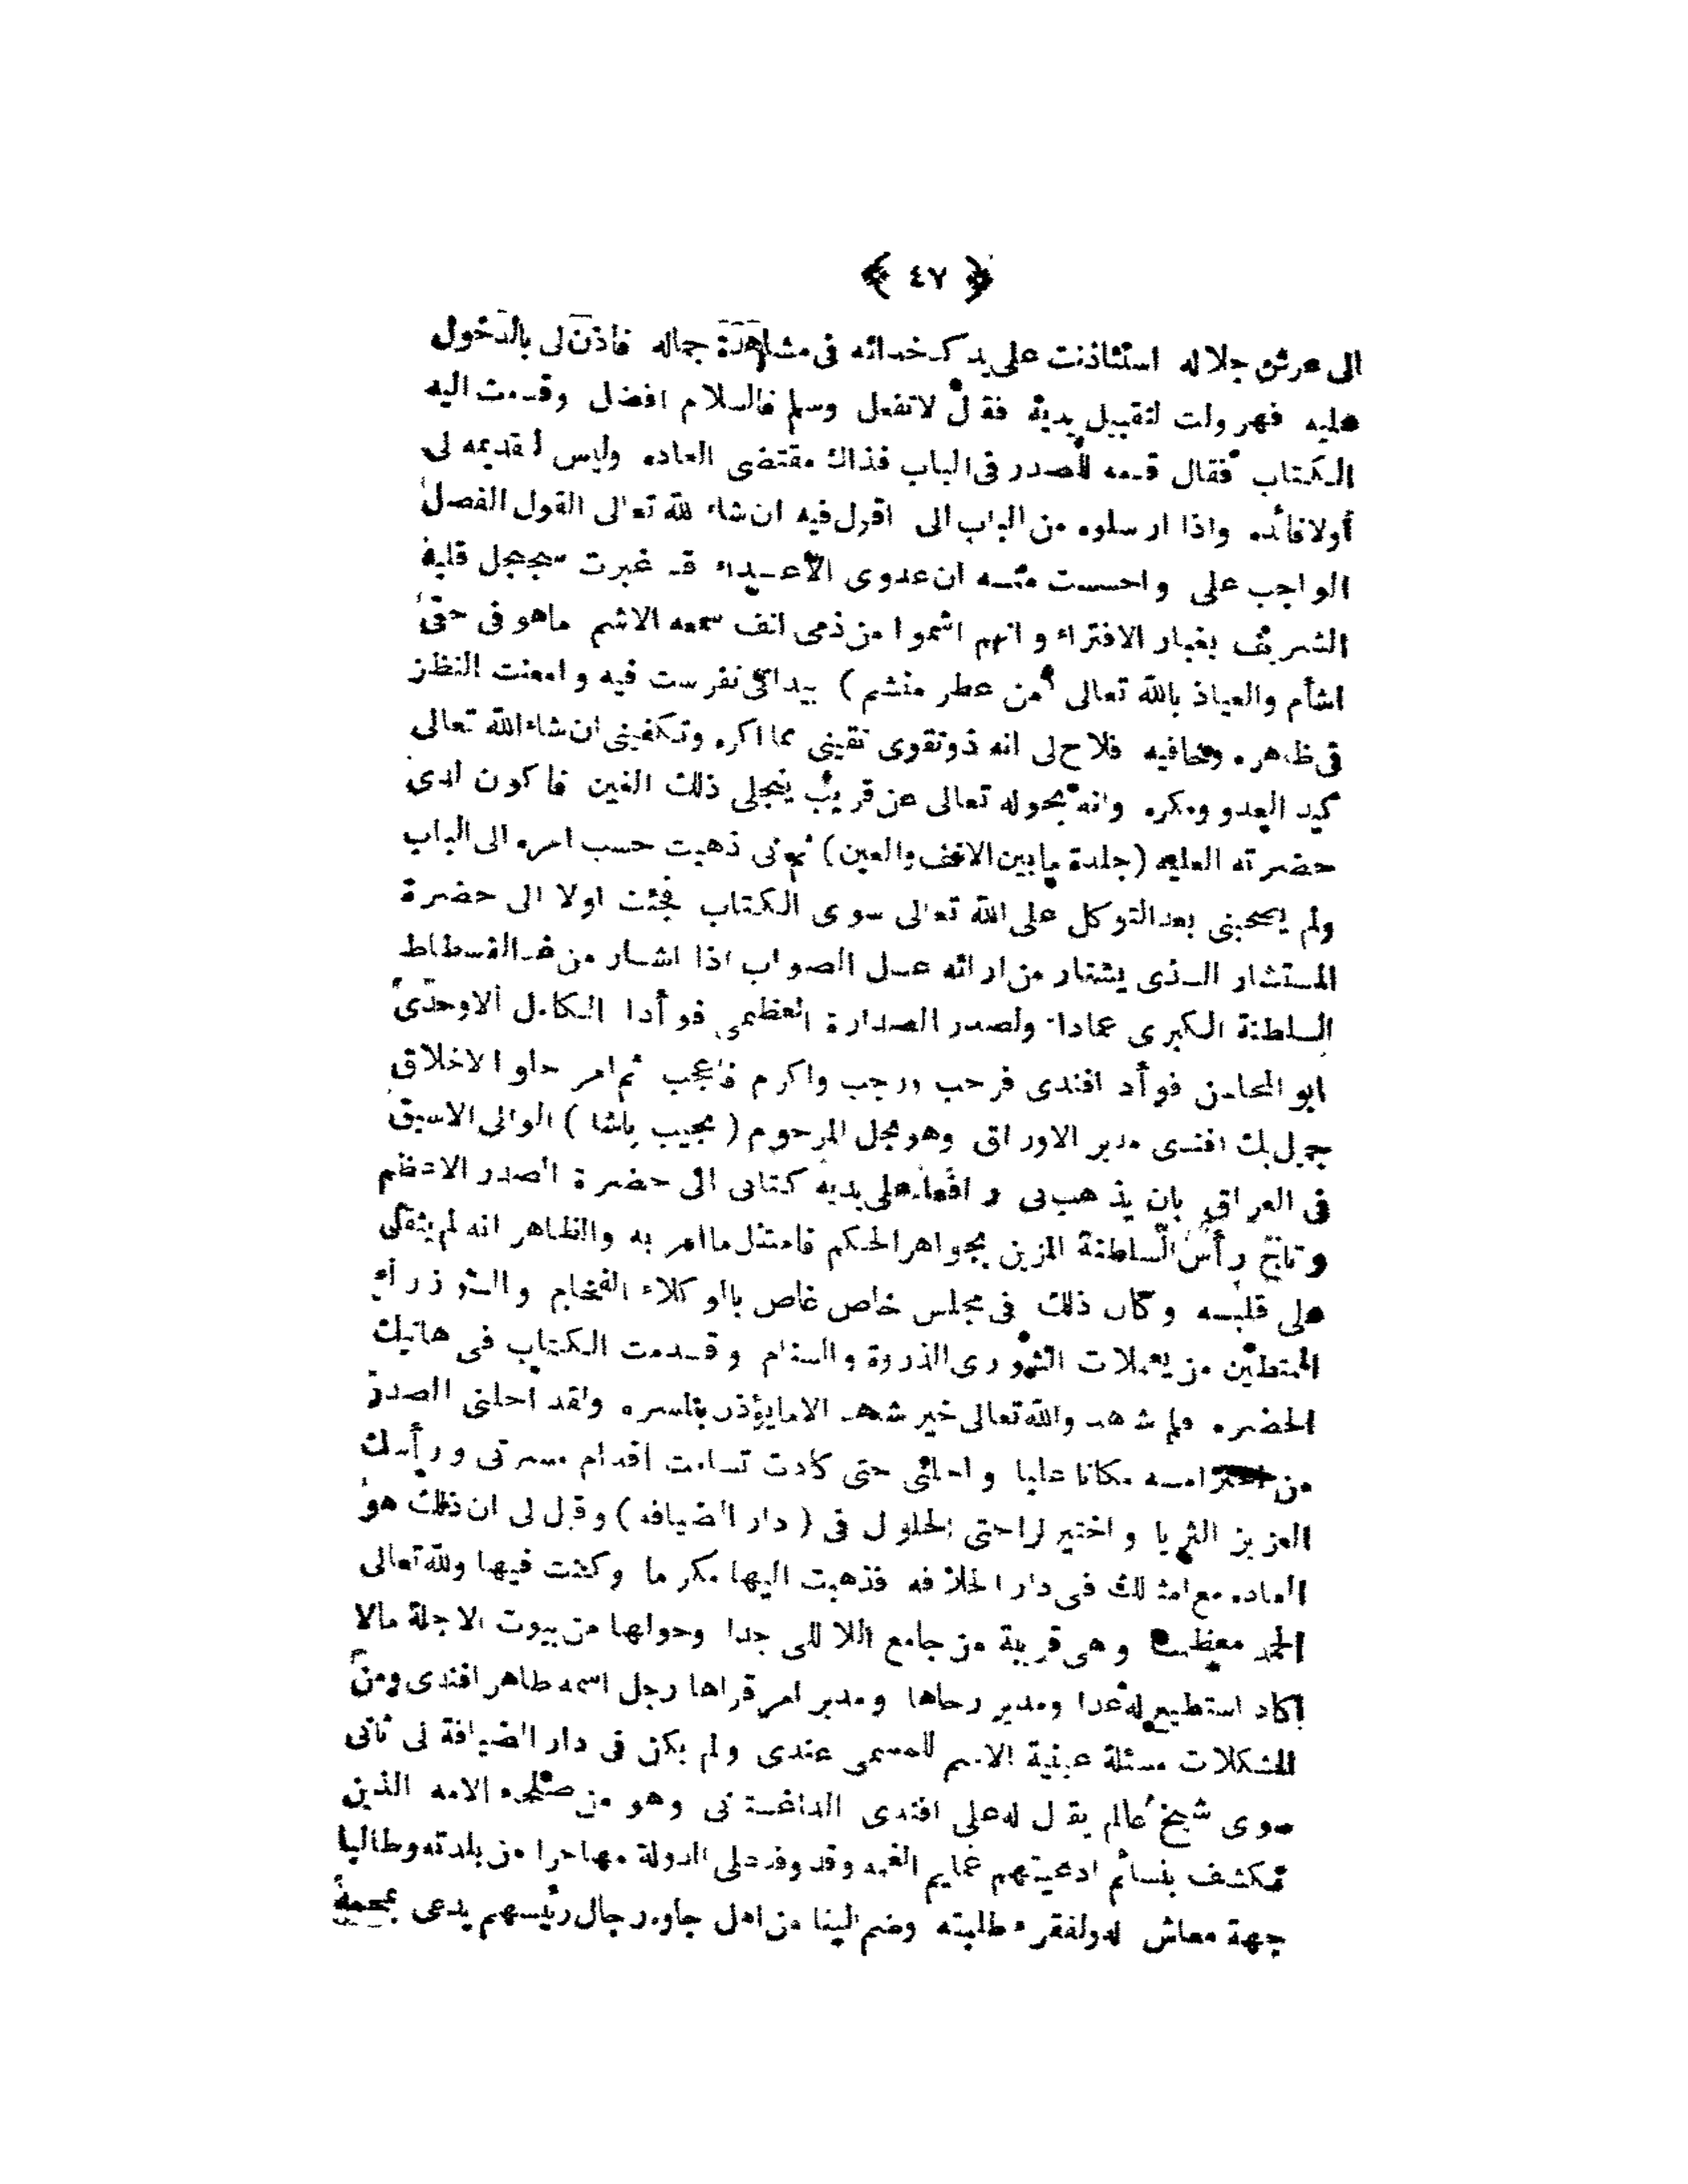 ﴿ ٤٧ ﴾
الى عرش جلاله استئاذنت على يد كدخدائه فى مشاهدة جماله فاذن لى بالدخول
عليه فهرولت لتقبيل يديه فقال لاتفعل وسلم فالسلام افضل وقدمت اليه
الكتاب فقال قدمه للصدر فى الباب فذاك مقتضى العاده وليس لتقديمه لى
أولا فائده واذا ارسلوه من الباب الى اقول فيه ان شاء الله تعالى القول الفصل
الواجب على واحسست منه ان عدوى الاعداء قد غبرت سجنجل قلبه
الشريف بغبار الافتراء وانهم اشموا من ذمى انف سمعه الاشم ماهو فى حقى
اشأم والعياذ بالله تعالى من عطر منشم ) بيد انى تفرست فيه وامعنت النظر
فى ظاهره وخافيه فلاح لى انه ذوتقوى تقينى مما اكره وتكفينى ان شاء الله تعالى
كيد العدو ومكره وانه بحوله تعالى عن قريب ينجلى ذلك الغين فاكون لدى
حضرته العليه (جلدة ما بين الانف والعين) ثم انى ذهبت حسب امره الى الباب
ولم يصحبنى بعد التوكل على الله تعالى سوى الكتاب فجئت اولا الى حضرة
المستشار الذى يشتار من ارائه عسل الصواب اذا اشار من غدا لفسطاط
السلطنة الكبرى عمادا ولصدر الصدارة العظمى فوأدا الكامل الاوحدى
ابو المحاسن فوأد افندى فرحب ورجب واكرم فاعجب ثم امر حلو الاخلاق
جميل بك افندى مدير الاوراق وهو نجل المرحوم ( نجيب باشا ) الوالى الاسبق
فى العراق بان يذهب بى رافعا على يديه كتابى الى حضرة الصدر الاعظم
وتاج رأس السلطنة المزين بجواهر الحكم فامتثل ما امر به والظاهر انه لم يثقل
على قلبه وكان ذلك فى مجلس خاص غاص بالوكلاء الفخام والوزراء
الممتطين من يعملات الشورى الذروة والسنام وقدمت الكتاب فى هاتيك
الحضره ولم شهد والله تعالى خير شهد الا مايؤذن بالمسره ولقد احلنى الصدر
من احترامه مكانا عليا واحلنى حتى كادت تسامت اقدام مسرتى ورأسك
العزيز الثريا واختير لراحتى الحلول فى ( دار الضيافه ) وقيل لى ان ذلك هو
العاده مع امثالك فى دار الخلافه فذهبت اليها مكرما وكنت فيها ولله تعالى
الحمد معظما وهى قريبة من جامع اللا للى جدا وحولها من بيوت الاجلة مالا
اكاد استطيع له عدا ومدير رحاها ومدبر امر قراها رجل اسمه طاهر افندى ومن
المشكلات مسئلة عينية الاسم للمسمى عندى ولم يكن فى دار الضيافة لى ثانى
سوى شيخ عالم يقال له على افندى الداغستانى وهو من صلحاء الامه الذين
تنكشف بنسائم ادعيتهم غمايم الغمه وقد وفد على الدولة مهاجرا من بلدته وطالبا
جهة معاش له ولفقراء طلبته وضم الينا من اهل جاوه رجال رئيسهم يدعى بمحمد